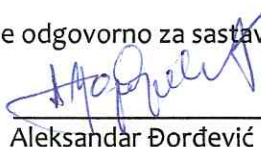 e odgovorno za sastav
Aleksandar Đorđević